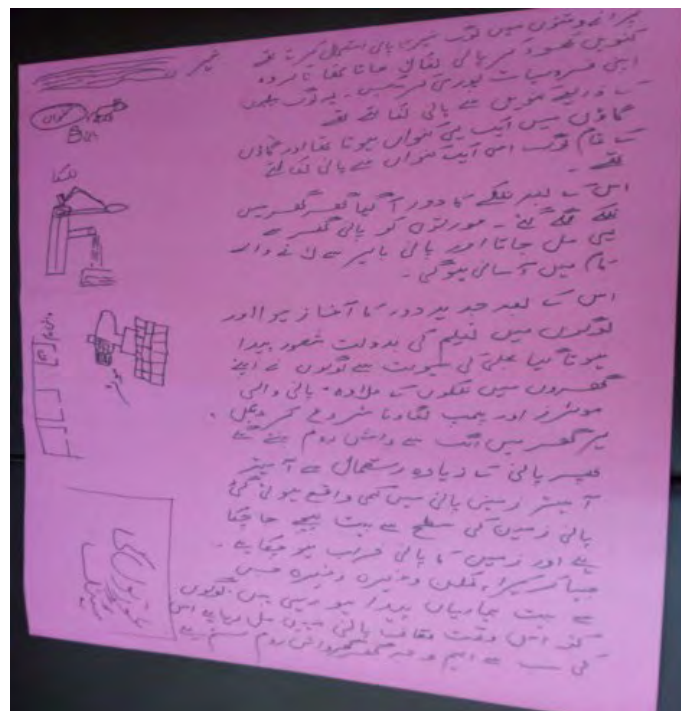 پرانے وقتوں میں لوگ نہر کا پانی استعمال کرتا تھے
کنویں کھود کر پانی نکالا جاتا تھا تاکہ وہ
اپنی ضروریات پوری کر سکیں۔ یہ لوگ بیلوں
کے ذریعے کنویں سے پانی نکالتے تھے
گاؤں میں ایک ہی کنواں ہوتا تھا اور گاؤں
کے تمام لوگ اسی ایک کنواں سے پانی نکالتے
تھے۔
اس کے بعد نلکے کا دور آ گیا گھر گھر میں
نلکے لگے گئے۔ عورتوں کو پانی گھر سے
ہی مل جاتا اور پانی باہر سے لانے والے
کام میں آسانی ہو گئی۔
اس کے بعد جدید دور کا آغاز ہوا اور
لوگوں میں تعلیم کی بدولت شعور پیدا
ہوتا گیا بجلی کی سہولت سے لوگوں نے اپنے
گھروں میں نلکوں کے علاوہ پانی والی
موٹرز اور پمپ لگانا شروع کر دیئے۔
ہر گھر میں الگ سے واش روم بننے لگے
جس پانی کے زیادہ استعمال سے آہستہ
آہستہ زمینی پانی میں کمی واقع ہوتی گئی
پانی زمین کی سطح سے بہت نیچے جا چکا
ہے اور زمین کا پانی خراب ہو چکا ہے۔
وغیرہ وغیرہ جس
سے بہت بیماریاں پیدا ہو رہی ہیں لوگوں
کو اس وقت صاف پانی نہیں مل رہا ہے اس
کی سب سے اہم وجہ گھر گھر واش روم سسٹم ہے
کنواں
بیل
نلکا
موٹر
واش روم